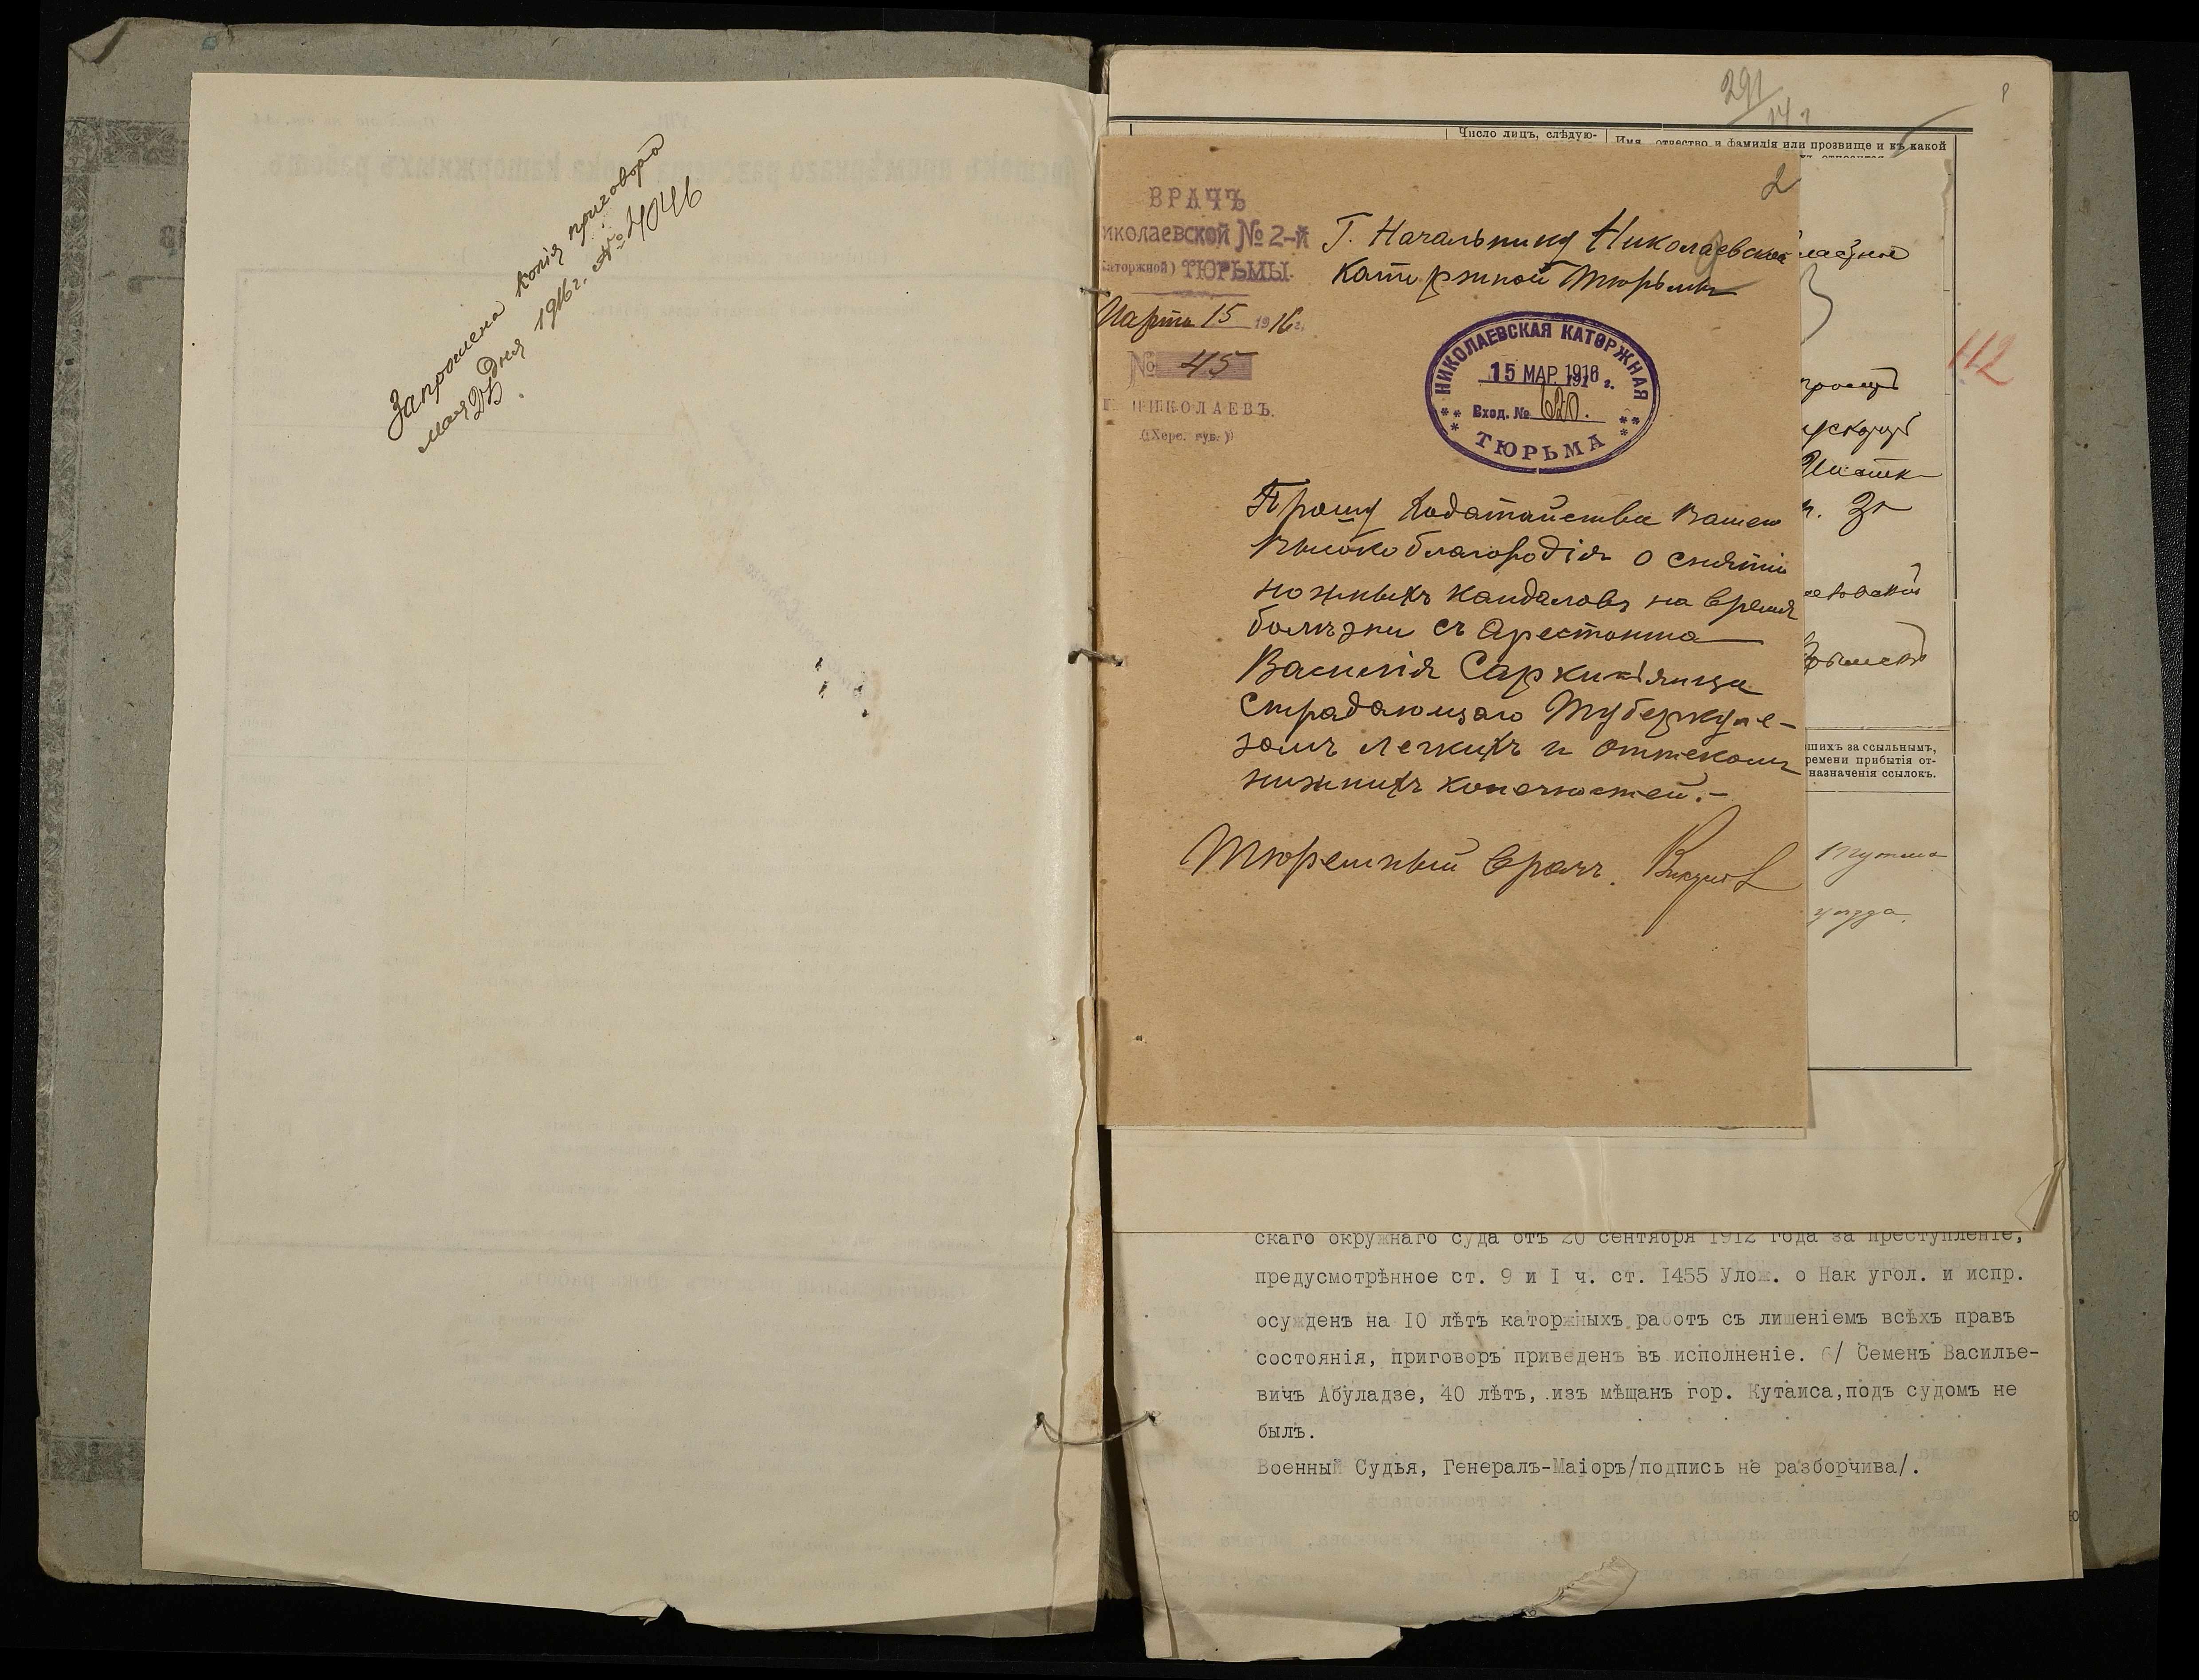 Запрошена копія приговора
мая 25 дня 1916 г. № 4046
291
14 г
Число лицъ, слѣдую-
Имя, отчество и фамилія или прозвище и къ какой
2
ВРАЧЪ
иколаевской № 2-й
каторжной) ТЮРЬМЫ.
Марта 15 1916 г.
№ 45
Г. НИКОЛАЕВЪ.
(Херс. губ.)
Г. Начальнику Николаевской
Каторжной Тюрьмы
НИКОЛАЕВСКАЯ КАТОРЖНАЯ
15 МАР 1916
191 г.
Вход. № 620.
ТЮРЬМА
112
Прошу Ходатайства Вашего
Высокоблагородія о снятіи
ножныхъ кандаловъ на время
болѣзни съ Арестанта
Василія Саркисянца
Страдающаго Туберкуле-
зомъ легкихъ и оттекомъ
нижнихъ конечностей.-
Тюремный врачъ.
шихъ за ссыльнымъ,
ремени прибытія от-
назначенія ссылокъ.
уѣзда.
скаго окружнаго суда отъ 20 сентября 1912 года за преступленіе,
предусмотрѣнное ст. 9 и I ч. ст. I455 Улож. о Нак угол. и испр.
осужденъ на I0 лѣтъ каторжныхъ работъ съ лишеніемъ всѣхъ правъ
состоянія, приговоръ приведенъ въ исполненіе. 6/ Семенъ Василье-
вичъ Абуладзе, 40 лѣтъ, изъ мѣщанъ гор. Кутаиса,подъ судомъ не
былъ.
Военный Судья, Генералъ-Маіоръ/подпись не разборчива/.